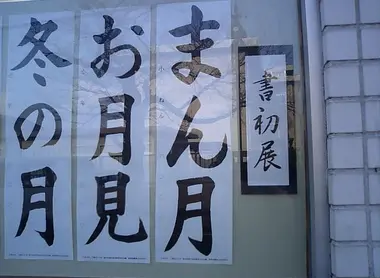 書初展
まん月
お月見
冬の月